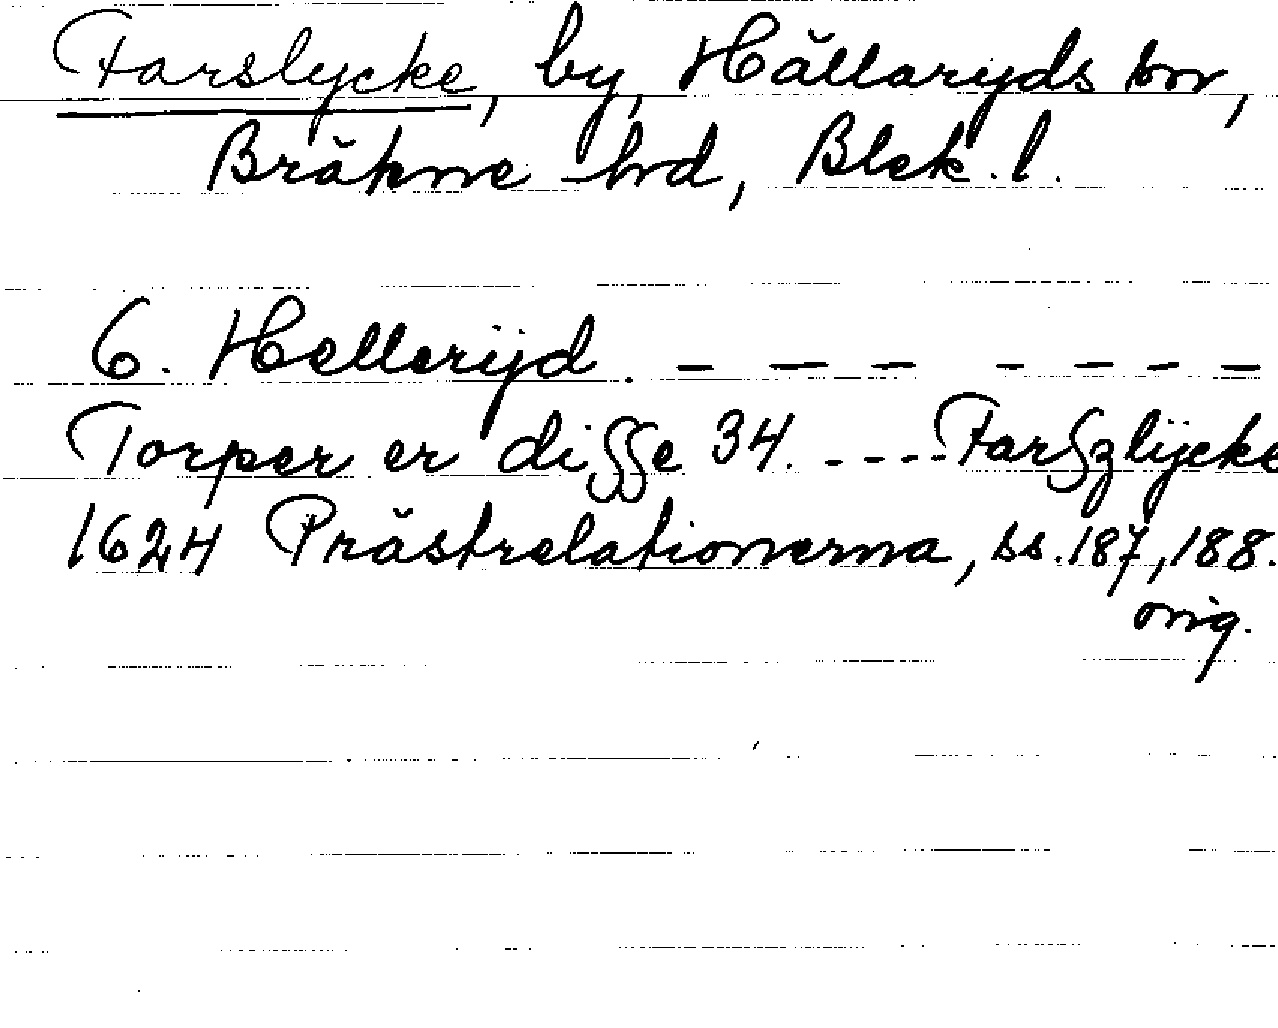 Farslycke, by, Hällaryds sn,
Bräkne hd, Blek. l.
6. Hellerijd. – – – – – – –
Torper er disse 34. - - - - Farszlijcke
1624 Prästrelationerna, ss. 187, 188.
orig.